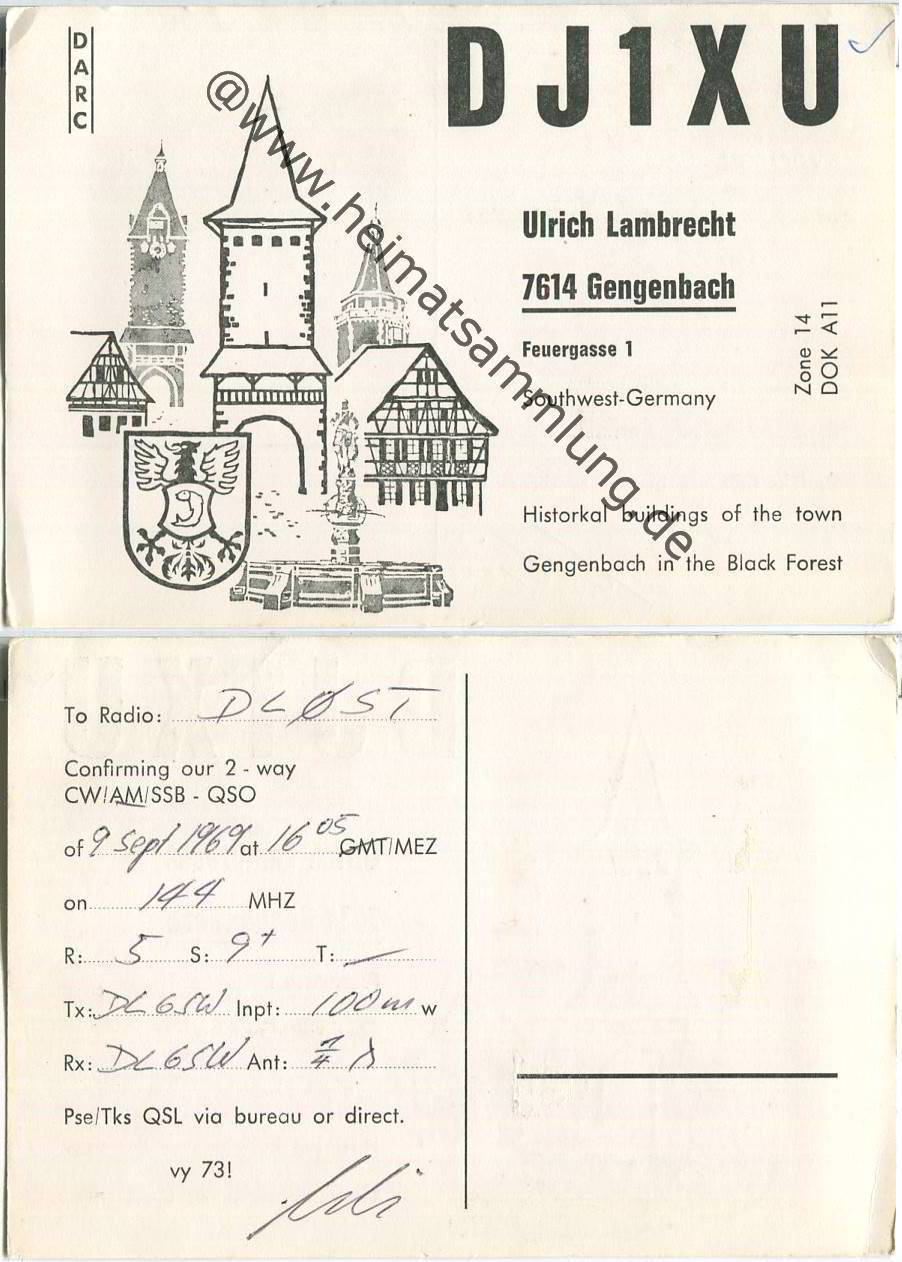 DARC
DJ1XU
@www.heimatsammlung.de
Ulrich Lambrecht
7614 Gengenbach
Feuergasse 1
Southwest-Germany
Zone 14
DOK A11
Historkal buildings of the town
Gengenbach in the Black Forest
To Radio: DLØST
Confirming our 2 - way
CW/AM/SSB - QSO
of 9 Sept 1969 at 16 05 GMT/MEZ
on 144 MHZ
R: 5 S: 9+ T: —
Tx: DL6SW Inpt: 100 m w
Rx: DL6SW Ant: 1/4 λ
Pse/Tks QSL via bureau or direct.
vy 73!